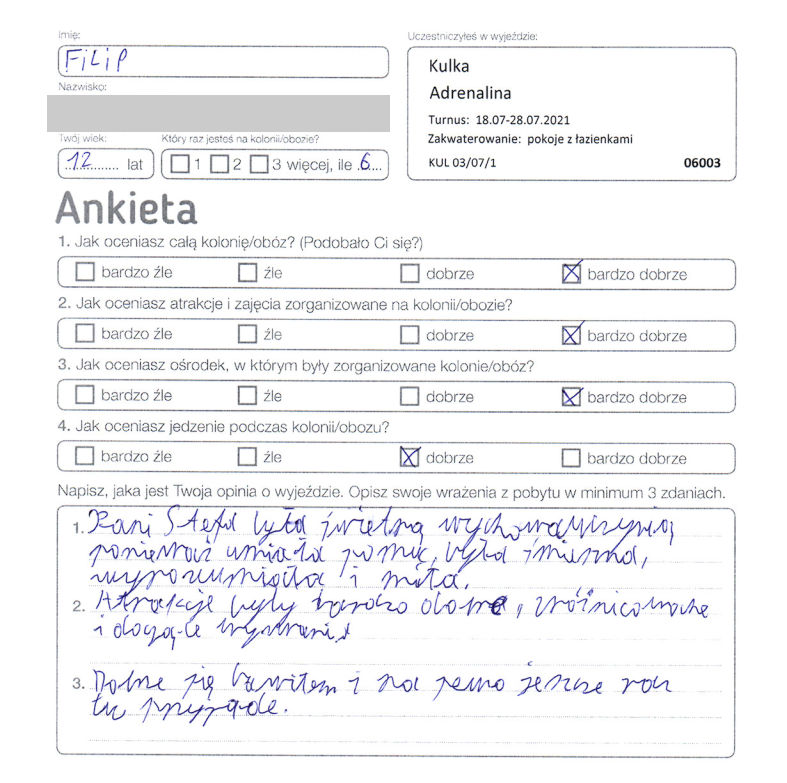 Imię:
FiLiP
Nazwisko:
Twój wiek:
12 lat
Który raz jesteś na kolonii/obozie?
1 2 3 więcej, ile 6
Uczestniczyłeś w wyjeździe:
Kulka
Adrenalina
Turnus: 18.07-28.07.2021
Zakwaterowanie: pokoje z łazienkami
KUL 03/07/1 06003
Ankieta
1. Jak oceniasz całą kolonię/obóz? (Podobało Ci się?)
bardzo źle źle dobrze bardzo dobrze
2. Jak oceniasz atrakcje i zajęcia zorganizowane na kolonii/obozie?
bardzo źle źle dobrze bardzo dobrze
3. Jak oceniasz ośrodek, w którym były zorganizowane kolonie/obóz?
bardzo źle źle dobrze bardzo dobrze
4. Jak oceniasz jedzenie podczas kolonii/obozu?
bardzo źle źle dobrze bardzo dobrze
Napisz, jaka jest Twoja opinia o wyjeździe. Opisz swoje wrażenia z pobytu w minimum 3 zdaniach.
1. Pani Stefa była świetną wychowawczynią
ponieważ umiała pomóc, była śmieszna,
wyrozumiała i miła.
2. Atrakcje były bardzo dobre, zróżnicowane
i
3. się bawiłem i na pewno jeszcze raz
tu przyjadę.